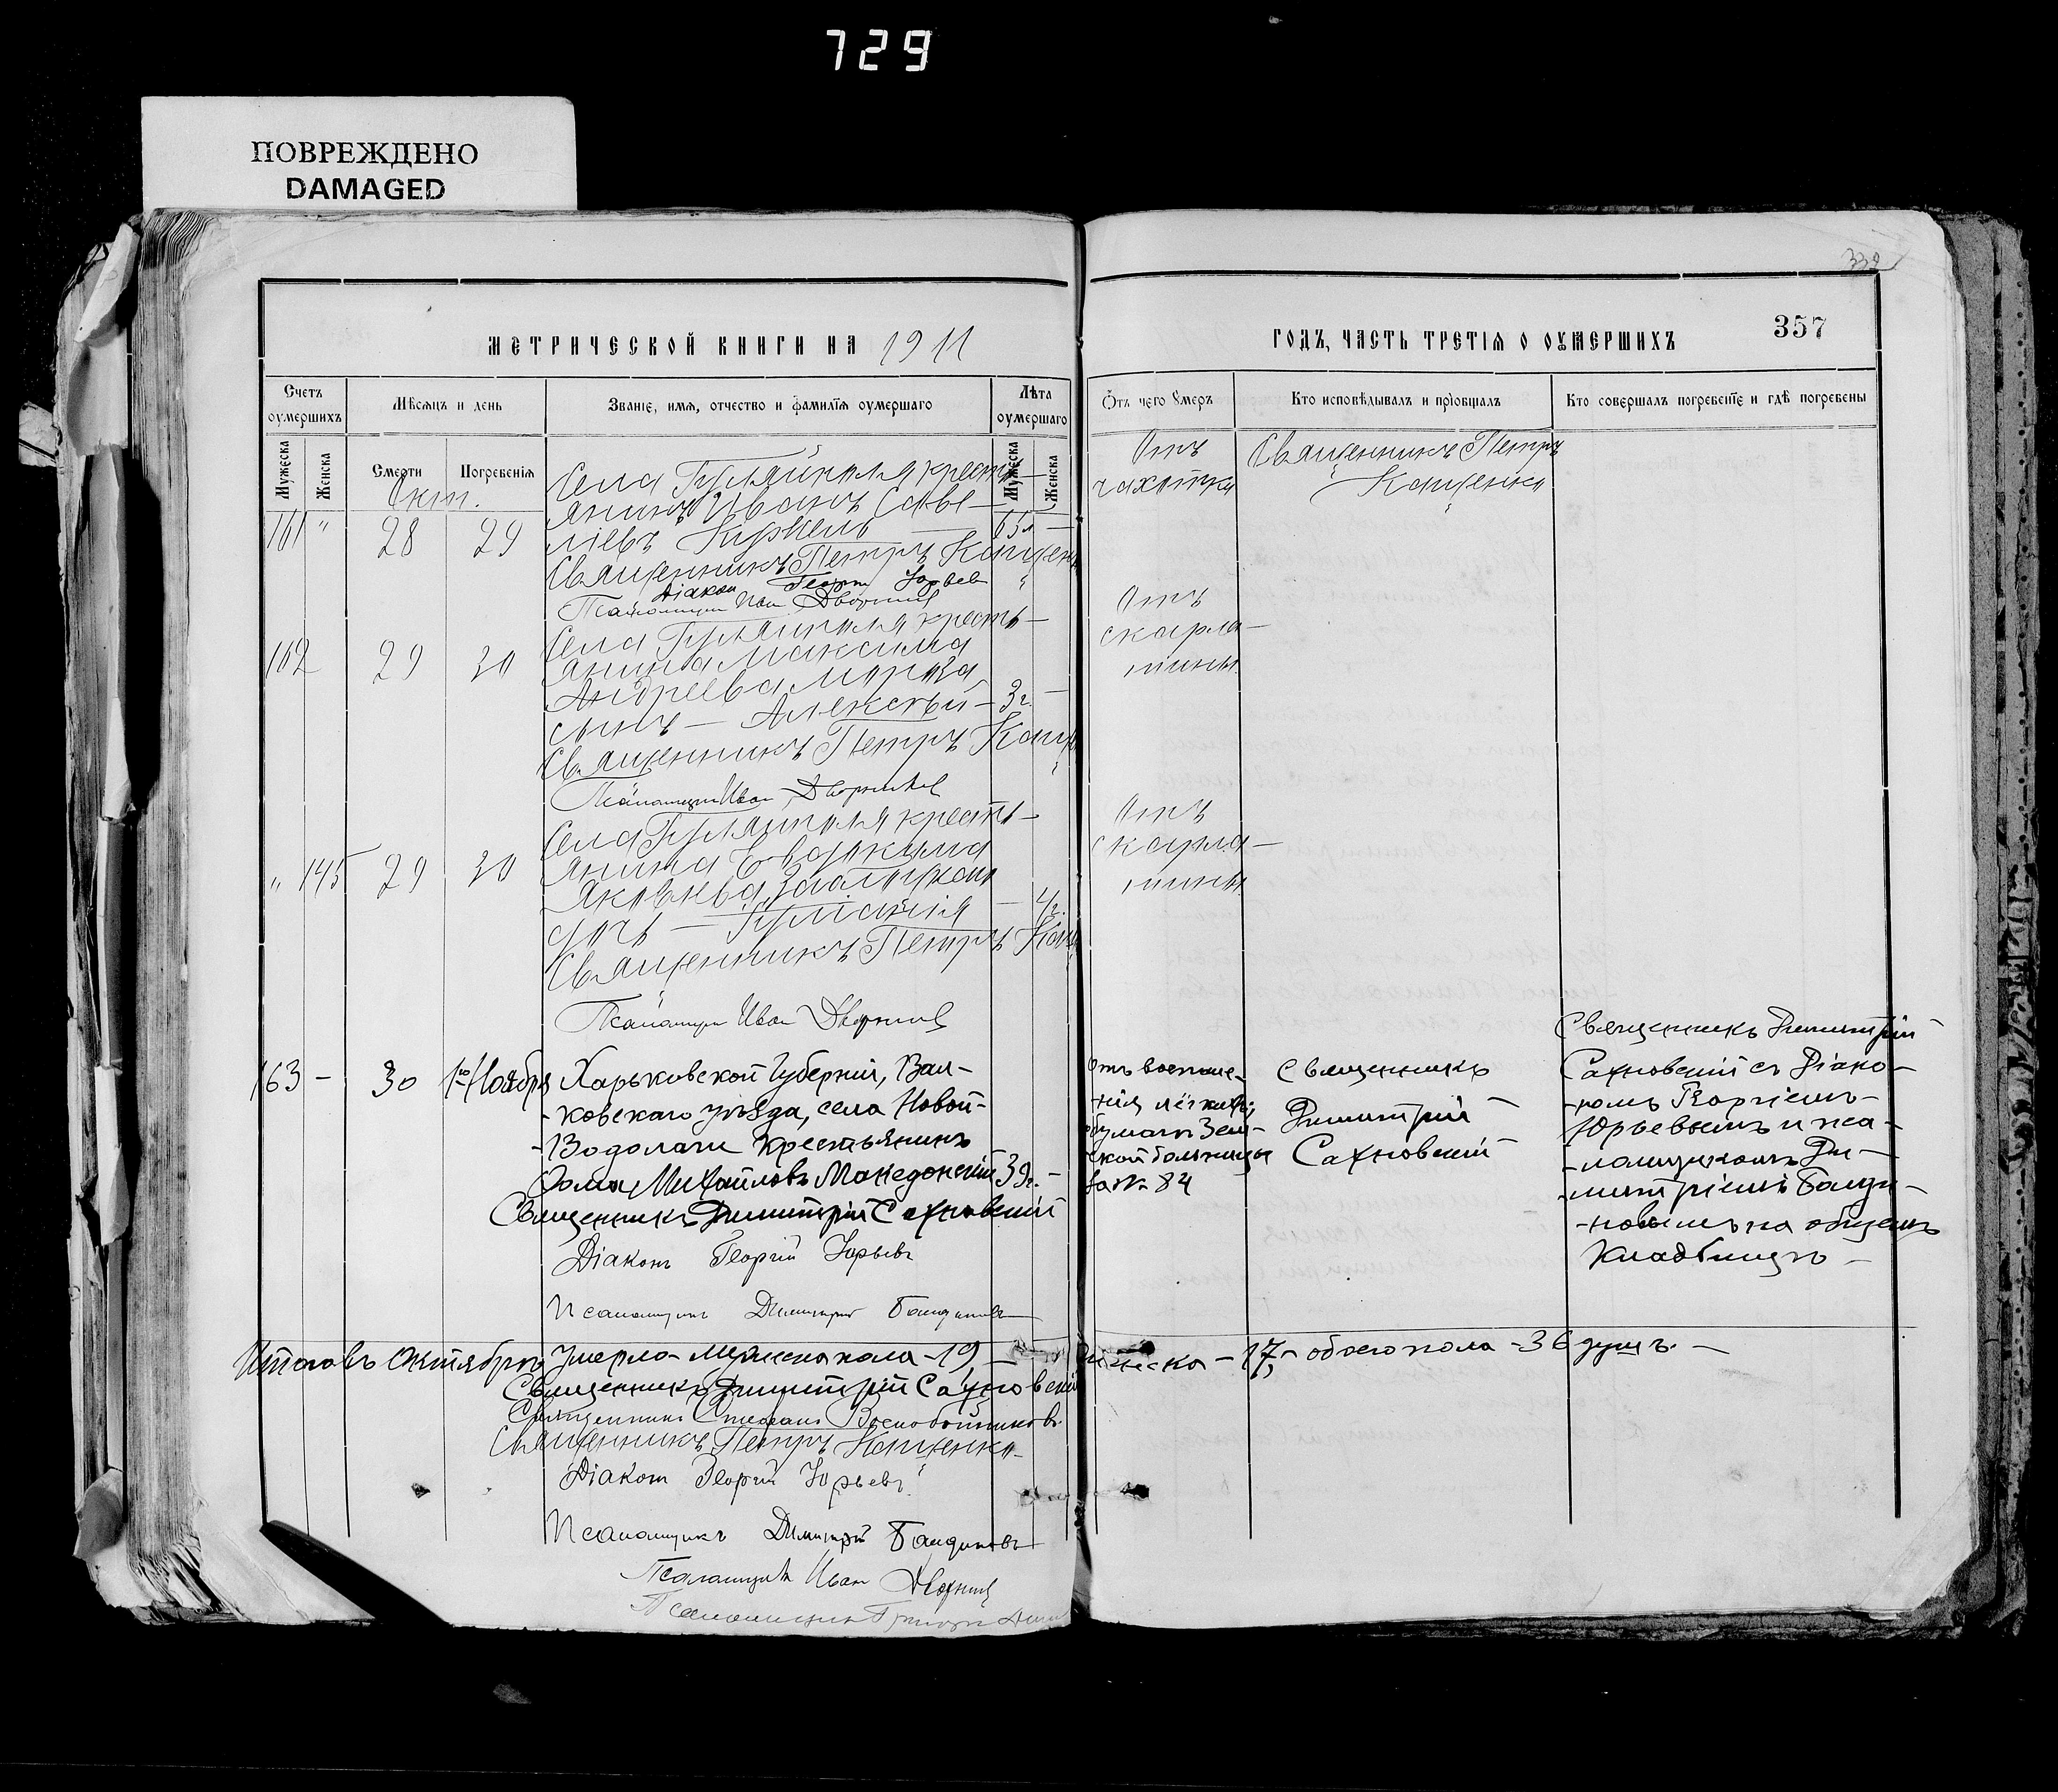 729
ПОВРЕЖДЕНО
DAMAGED
339
МЕТРИЧЕСКОЙ КНИГИ НА 1911
ГОДЪ, ЧАСТЬ ТРЕТІЯ О ОУМЕРШИХЪ
357
Счетъ оумершихъ
Мѣсяцъ и день
Званіе, имя, отчество и фамилія оумершаго
Лѣта оумершаго
Отъ чего оумеръ
Кто исповѣдывалъ и пріобщалъ
Кто совершалъ погребеніе и гдѣ погребены
Мужеска
Женска
Смерти
Погребенія
Мужеска
Женска
Окт.
161 " 28 29
Села Гуляйполя кресть-
янинъ Иванъ Саве-
ліевъ Кирпель 65 л —
Священникъ Петръ Кащенко
Діакон Георгій Юрьев
Псаломщик Иван Дворник
Отъ
чахотки
Священникъ Петръ
Кащенко
162 29 30
Села Гуляйполя кресть-
янина Максима
Андреева Мороза
сынъ — Алексѣй — 3 г. —
Священникъ Петръ Кащ
Псаломщик Иван Дворник
Отъ
скарла-
тины
" 145 29 30
Села Гуляйполя кресть-
янина Евдокима
Яковлева
дочь — Гуліанія — 4 г.
Священникъ Петръ Кащ
Псаломщик Иван Дворник
Отъ
скарла-
тины
163 — 30 1го Ноября
Харьковской Губерніи, Вал-
-ковскаго уѣзда, села Новой-
-Водолаги крестьянинъ
Ѳома Михайловъ Македонскій 39 г. —
Священникъ Димитрій Сахновскій
Діаконъ Георгій Юрьевъ
Псаломщикъ Димитрій Бандиновъ
Отъ воспале-
нія лёгкихъ;
бумага Зем-
ской больницы
за № 84
Священникъ
Димитрій
Сахновскій
Священникъ Димитрій
Сахновскій съ Діако-
-номъ Георгіемъ
Юрьевымъ и пса-
-ломщикомъ Ди-
-митріемъ Банди-
-новымъ на общемъ
Кладбищѣ —
Итого въ Октябрѣ умерло — мужеска пола — 19 — женска — 17, — обоего пола — 36 душъ. —
Священникъ Димитрій Сахновскій
Священникъ Стефанъ Воскобойниковъ
Священникъ Петръ Кащенко
Діакон Георгій Юрьевъ
Псаломщикъ Димитрій Бандиновъ
Псаломщик Иван Дворник
Псаломщик Григори